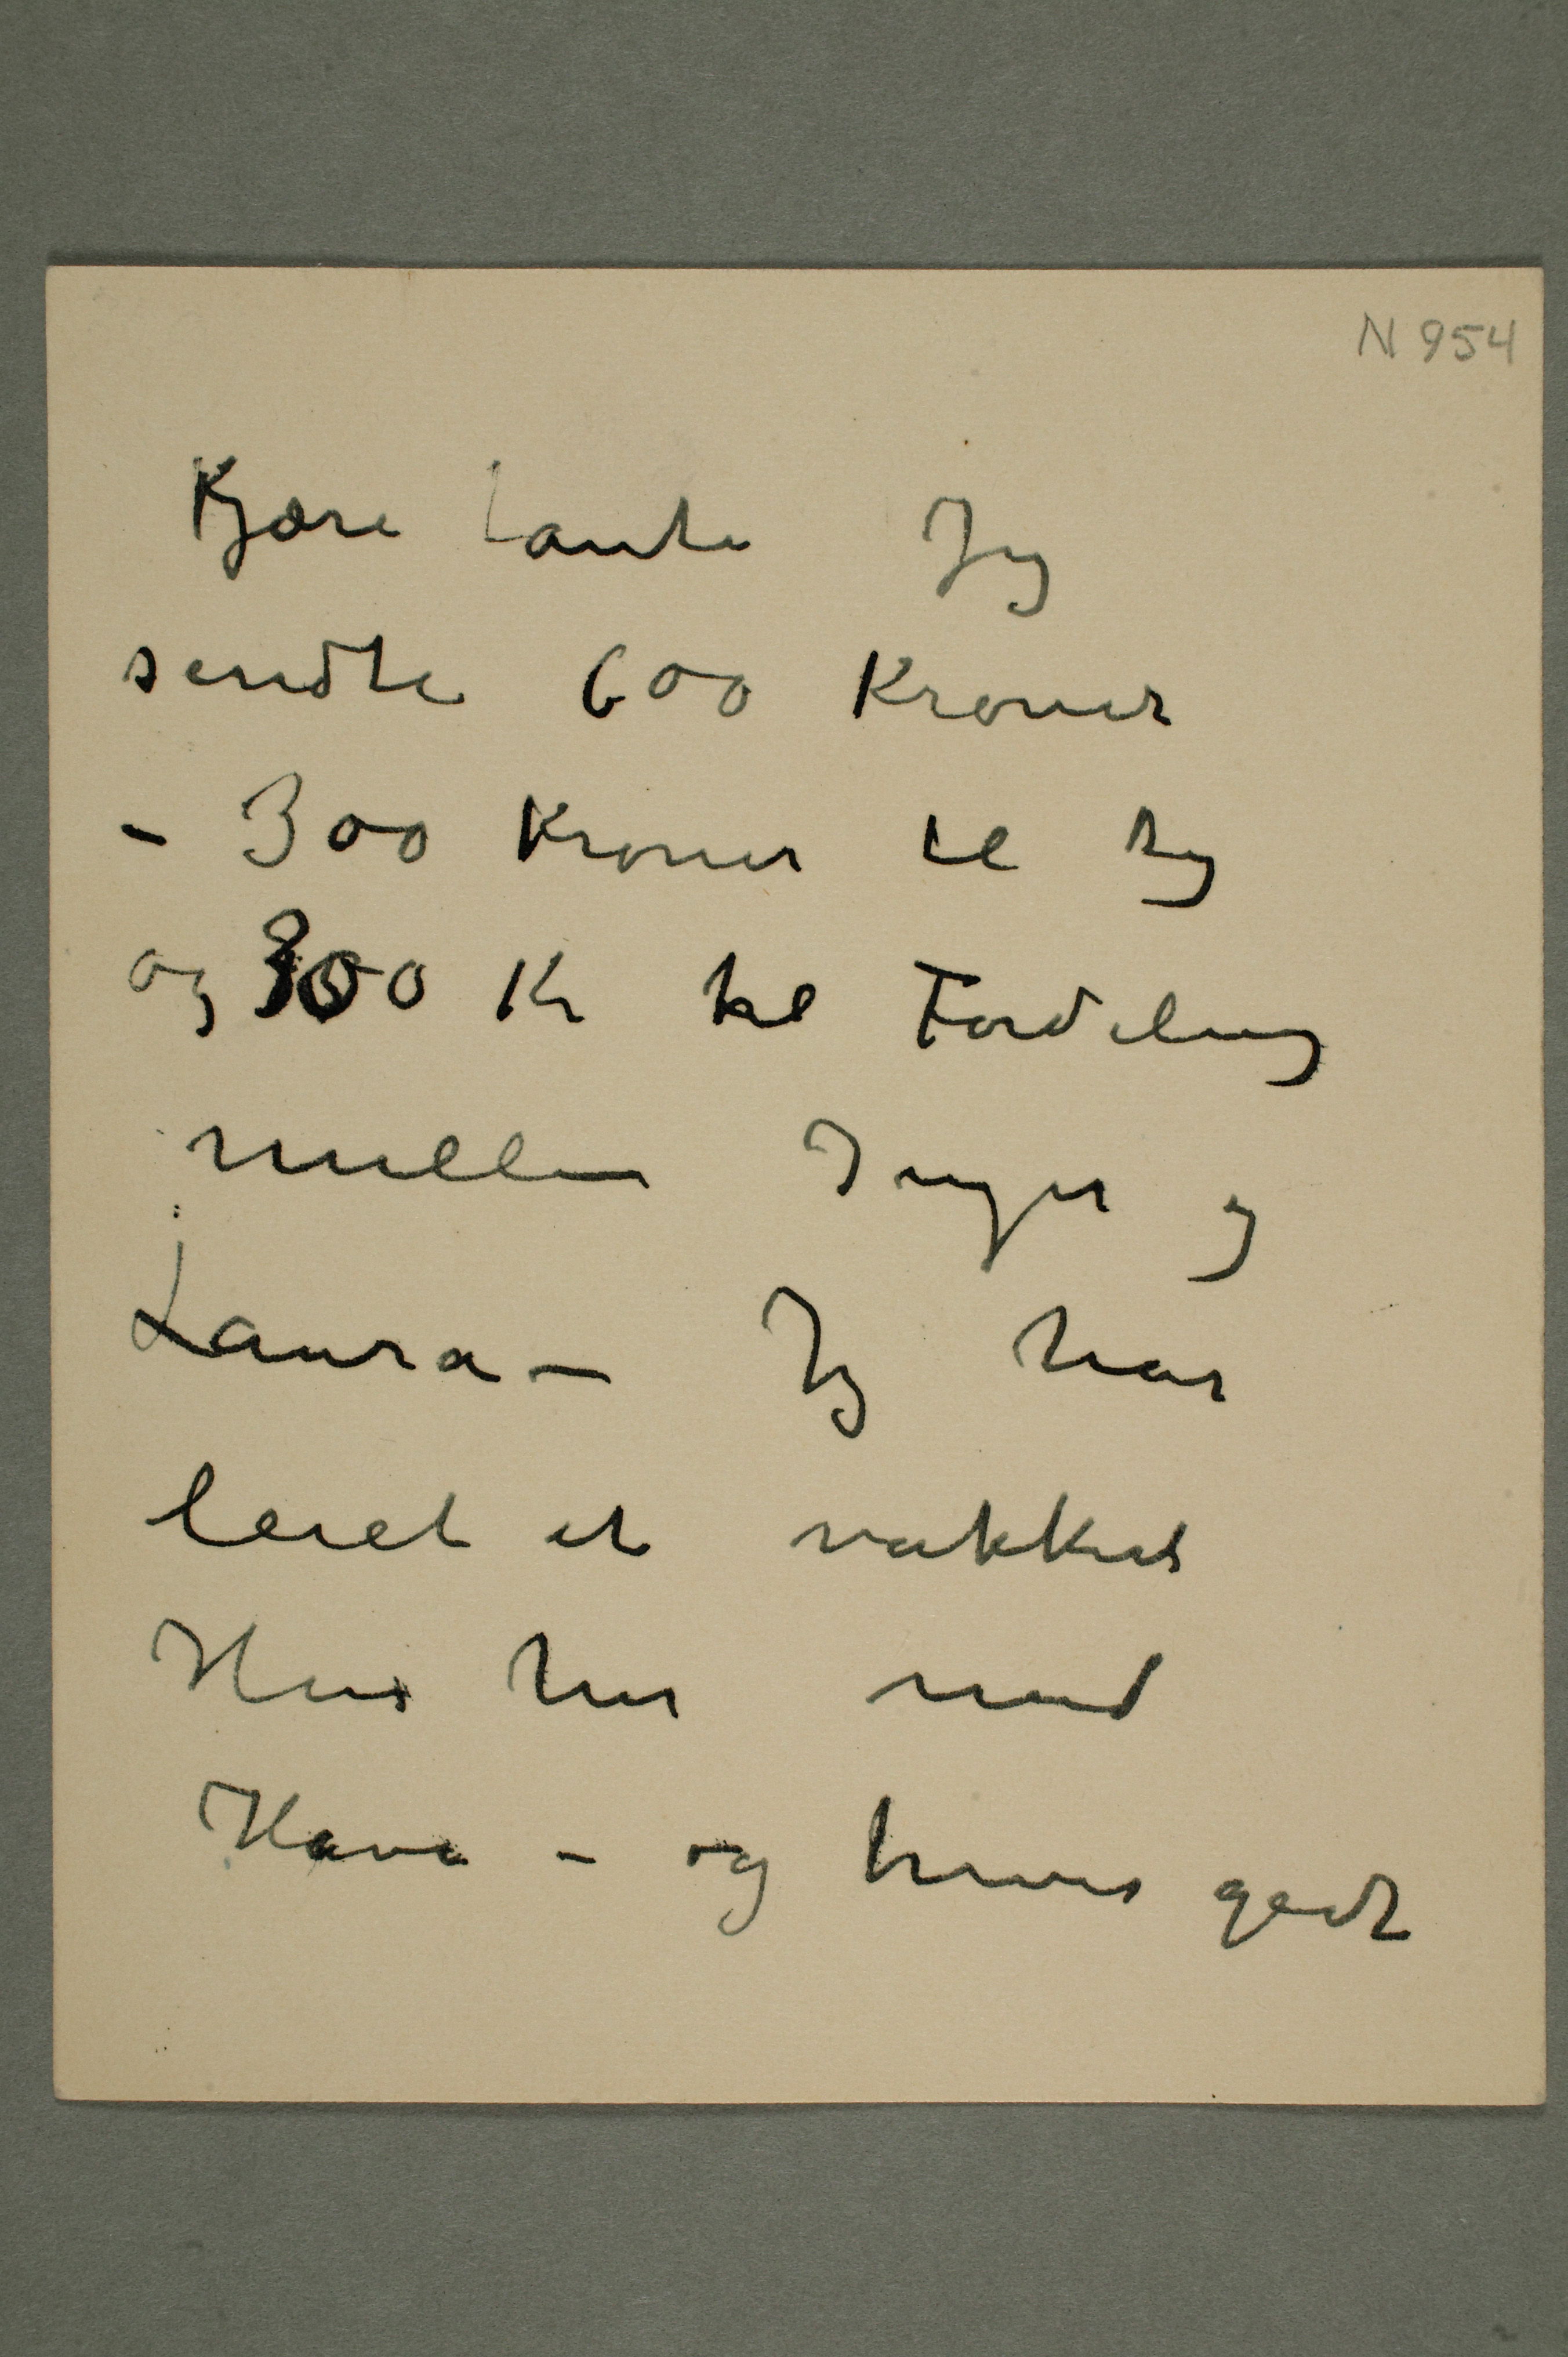 N 954
Kjære tante Jeg
sendte 600 Kroner
– 300 Kroner til dig
og 300 Kr til Fordeling
mellem Inger og
Laura – Jeg har
leiet et vakkert
Hus her med
Have – og trives godt